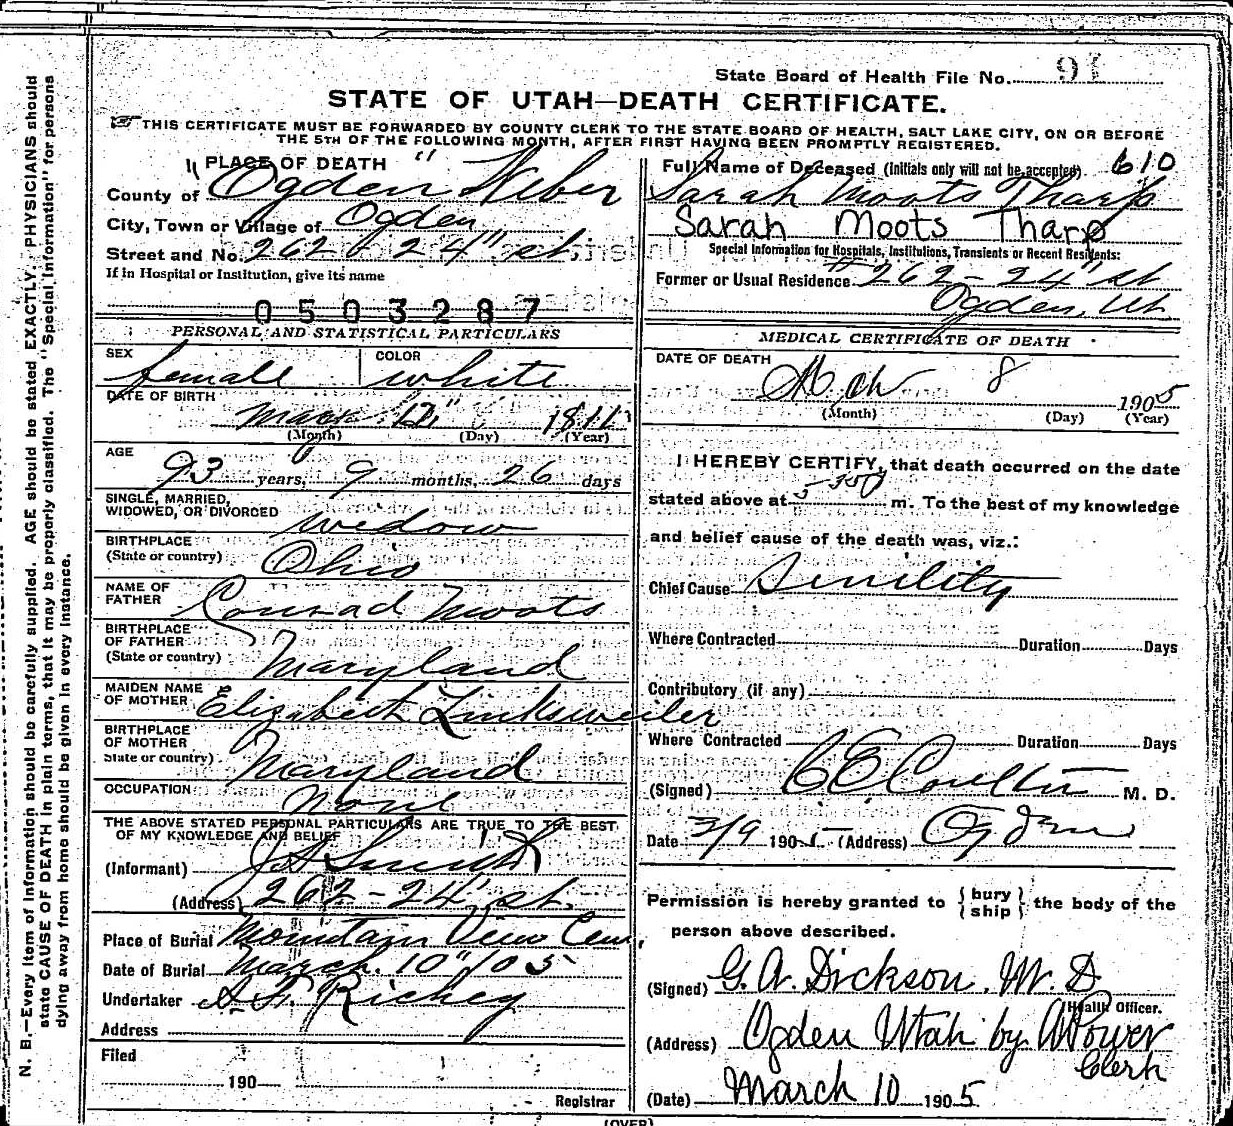 N. B.—Every item of information should be carefully supplied. AGE should be stated EXACTLY. PHYSICIANS should
state CAUSE OF DEATH in plain terms, that it may be properly classified. The "Special Information" for persons
dying away from home should be given in every instance.
State Board of Health File No. 91
STATE OF UTAH—DEATH CERTIFICATE.
THIS CERTIFICATE MUST BE FORWARDED BY COUNTY CLERK TO THE STATE BOARD OF HEALTH, SALT LAKE CITY, ON OR BEFORE
THE 5TH OF THE FOLLOWING MONTH, AFTER FIRST HAVING BEEN PROMPTLY REGISTERED.
PLACE OF DEATH
County of Ogden Weber
City, Town or Village of Ogden
Street and No. 262 24" st.
If in Hospital or Institution, give its name
0503287
PERSONAL AND STATISTICAL PARTICULARS
SEX female COLOR white
DATE OF BIRTH
12" 1811
(Month) (Day) (Year)
AGE
93 years, 9 months, 26 days
SINGLE, MARRIED,
WIDOWED, OR DIVORCED widow
BIRTHPLACE
(State or country) Ohio
NAME OF
FATHER Conrad Moots
BIRTHPLACE
OF FATHER
(State or country) Maryland
MAIDEN NAME
OF MOTHER Elizabeth Linksweiler
BIRTHPLACE
OF MOTHER
State or country) Maryland
OCCUPATION None
THE ABOVE STATED PERSONAL PARTICULARS ARE TRUE TO THE BEST
OF MY KNOWLEDGE AND BELIEF
(Informant) J A Smith
(Address) 262 - 24" st.
Place of Burial Mountain View Cem,
Date of Burial March 10" 05
Undertaker Richey
Address
Filed
190
Registrar
Full Name of Deceased (initials only will not be accepted) 610
Sarah Moots Tharp
Sarah Moots Tharp
Special Information for Hospitals, Institutions, Transients or Recent Residents:
Former or Usual Residence #262 - 24" st
Ogden, Ut
MEDICAL CERTIFICATE OF DEATH
DATE OF DEATH
Mch 8 1905
(Month) (Day) (Year)
I HEREBY CERTIFY, that death occurred on the date
stated above at m. To the best of my knowledge
and belief cause of the death was, viz.:
Chief Cause Senility
Where Contracted Duration Days
Contributory (if any)
Where Contracted Duration Days
(Signed) M. D.
Date 3/9 1905 (Address) Ogden
Permission is hereby granted to { bury ship } the body of the
person above described.
(Signed) G. A. Dickson. M. D
Health Officer.
(Address) Ogden Utah by A Power
Clerk
(Date) March 10 1905
(OVER)